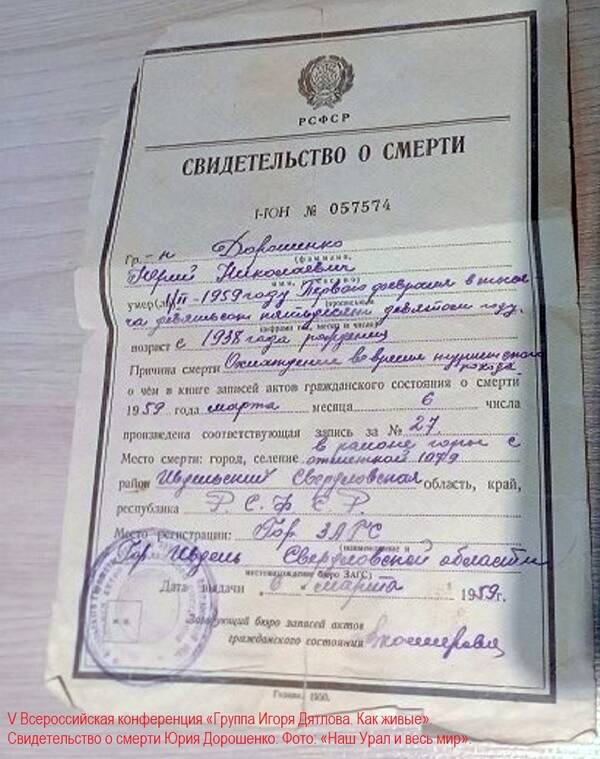 РСФСР
СВИДЕТЕЛЬСТВО О СМЕРТИ
I-ЮН № 057574
Гр.-н Дорошенко
(фамилия,
Юрий Николаевич
имя, отчество)
умер(ла) 1/II-1959 году Первого февраля в тыся
(прописью:
ча девятьсот пятьдесят девятом году.
цифрами год, месяц и число)
возраст с 1938 года рождения
Причина смерти Охлаждение во время туристского
похода
о чём в книге записей актов гражданского состояния о смерти
1959 года марта месяца 6 числа
произведена соответствующая запись за № 27.
в районе горы с
Место смерти: город, селение отметкой 1079
район Ивдельский Свердловская область, край,
республика Р.С.Ф.С.Р.
Место регистрации: Гор. ЗАГС
(наименование и
Гор. Ивдель Свердловской области
местонахождение бюро ЗАГС)
Дата выдачи 6 марта 1959г.
М. П.
Заведующий бюро записей актов
гражданского состояния
Гознак. 1950.
V Всероссийская конференция «Группа Игоря Дятлова. Как живые»
Свидетельство о смерти Юрия Дорошенко. Фото: «Наш Урал и весь мир»